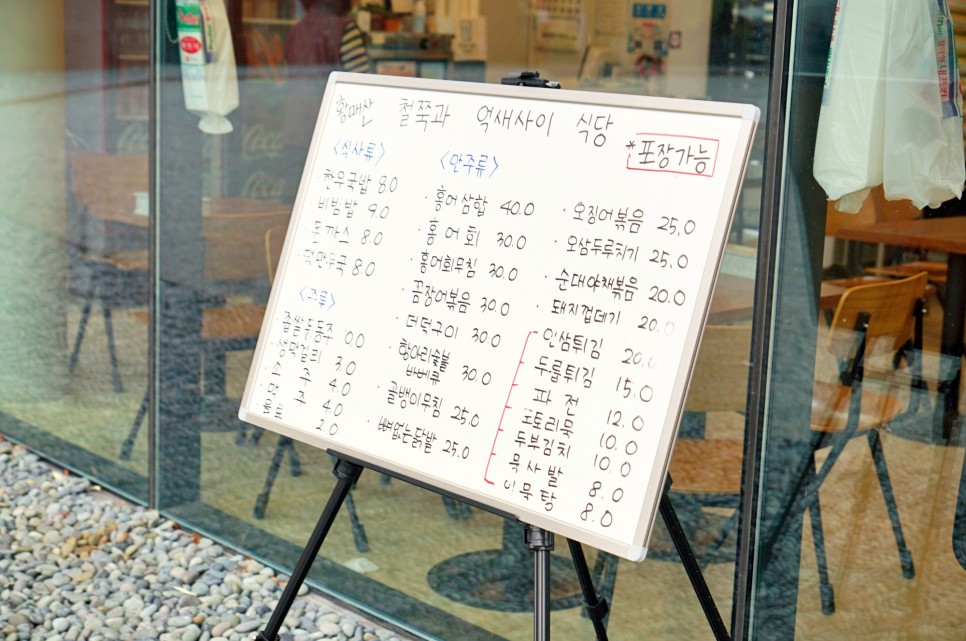 황매산 철쭉과 억새사이 식당
*포장가능
<식사류>
한우국밥 8.0
· 비빔밥 9.0
· 돈까스 8.0
· 떡만두국 8.0
<주류>
· 좁쌀동동주
· 생막걸리 3.0
· 소 주 4.0
· 맥 주 4.0
2.0
<안주류>
· 홍어삼합 40.0
· 홍어회 30.0
· 홍어회무침 30.0
· 꼼장어볶음 30.0
· 더덕구이 30.0
· 항아리숯불
바베큐 30.0
· 골뱅이무침 25.0
· 뼈없는닭발 25.0
· 오징어볶음 25.0
· 오삼두루치기 25.0
· 순대야채볶음 20.0
· 돼지껍데기 20.0
인삼튀김 20.0
두릅튀김 15.0
파 전 12.0
도토리묵 10.0
두부김치 10.0
묵사발 8.0
어묵탕 8.0